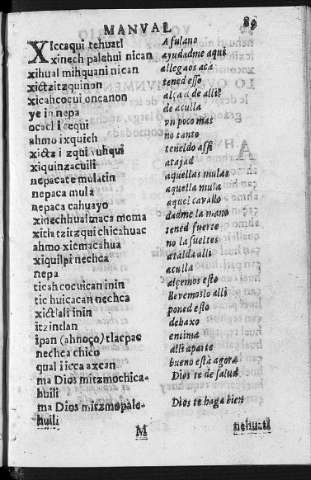 MANVAL 89
Xiccaqui tehuatl A fulano
xinech palehui nican ayudadme aqui
xihual mihquani nican allegaos acà
xictzitzquinon tened esso
xicahcocui oncanon alçad de alli
ye in nepa de aculla
ocachi cequi vn poco mas
ahmo ixquich no tanto
xicta izqui teneldo assi
xiquinzacuili atajad
nepacate mulatin aquellas mulas
nepaca mula aquella mula
nepaca cahuayo aquel cavallo
xinechhualmaca moma dadme la mano
xictitzitzqui chicahuac tened fuerte
ahmo xicmacahua no la sueltes
xiquilpi nechca ataldaalli
nepa aculla
ticahcocuican inin alçemos esto
tic huicacan nechca llevemoslo alli
xictlali inin poned esto
itzintlan debaxo
ipan (ahnoço) tlacpac encima
nechca chico alli aparte
qualli icca axcan bueno està agora
ma Dios mitzmochica- Dios te dè salud
huili
ma Dios mitzmopale- Dios te haga bien
huili
M nehuatl